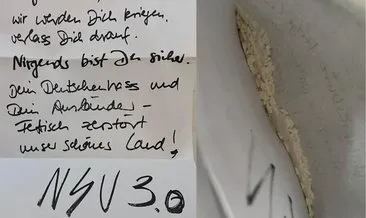 wir werden Dich kriegen.
verlass Dich drauf.
Nirgends bist Du sicher.
Dein Deutschenhass und
Dein Ausländer-
Fetisch zerstört
unser schönes Land!
NSU 3.0